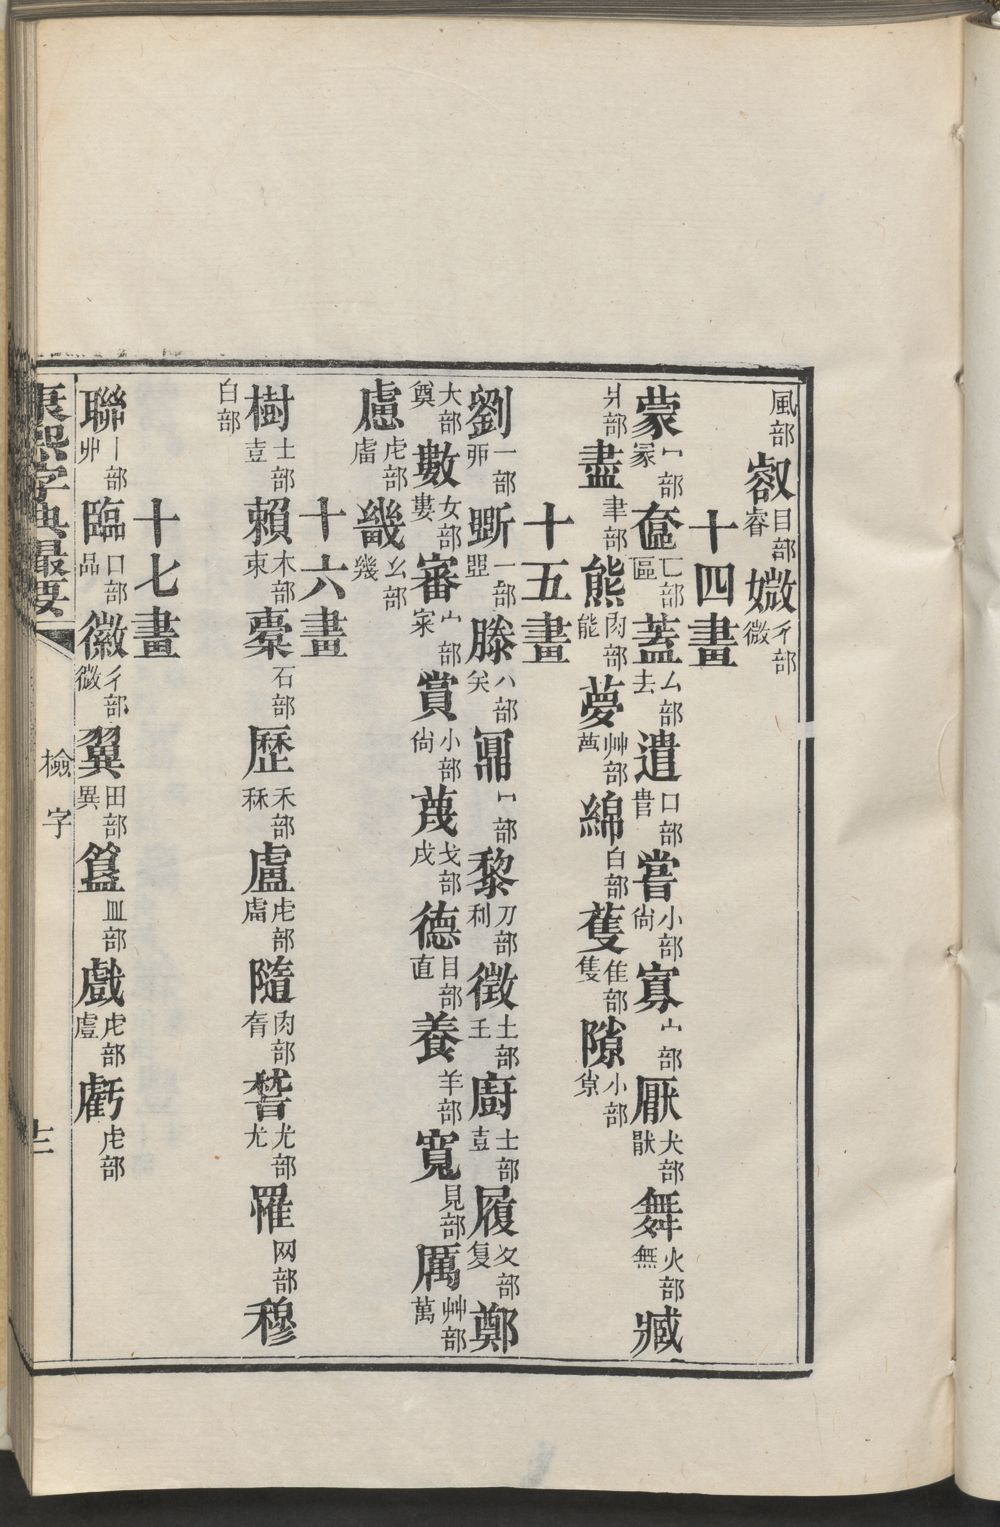 風部 叡目部睿 媺彳部微
十四畫
蒙冖部冡 奩匸部區 蓋厶部去 遣口部𠳋 嘗小部尙 寡宀部 厭犬部猒 舞火部無 臧
爿部 盡聿部 熊肉部能 夢艸部 綿白部 隻隹部隻 隙小部𡭴
十五畫
劉一部丣 𣃁一部㽬 滕八部 冪冖部 黎刀部利 徵士部王 廚士部壴 履夂部复 鄭
大部奠 數女部婁 審宀部寀 賞小部尙 蔑戈部戍 德目部直 養羊部 寬見部 厲艸部萬
慮虍部虘 畿幺部幾
十六畫
樹士部壴 賴木部束 橐石部 歷禾部秝 盧虍部𧆨 隨肉部 㫺尤部尤 罹网部 穆
白部
十七畫
聯丨部丱 臨口部品 徽彳部微 翼田部異 簋皿部 戲虍部䖒 虧虍部
康熙字典撮要
檢字
十二